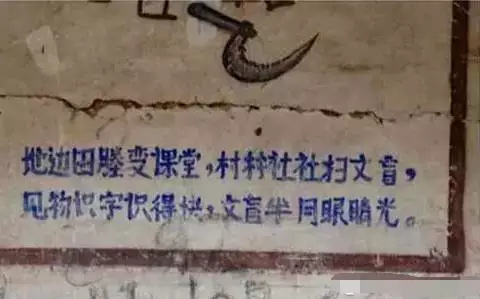 地边田塍变课堂,村村社社扫文盲,
见物识字识得快,文盲半月眼睛光。